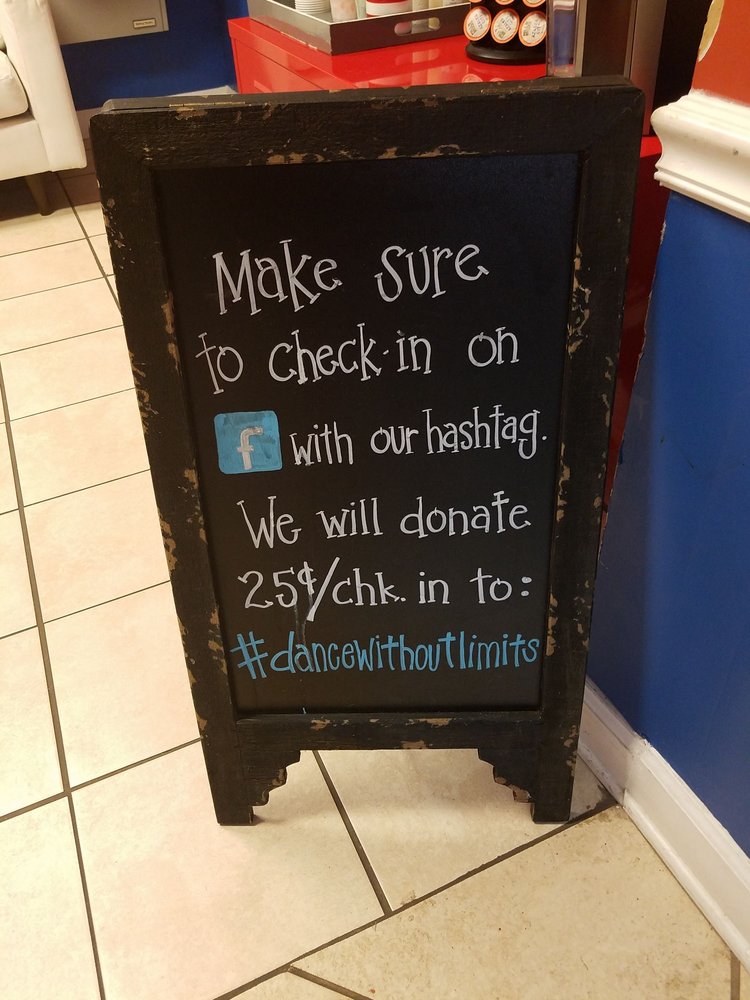 Make sure
to check-in on
f with our hashtag.
We will donate
25¢/chk. in to:
#dancewithoutlimits